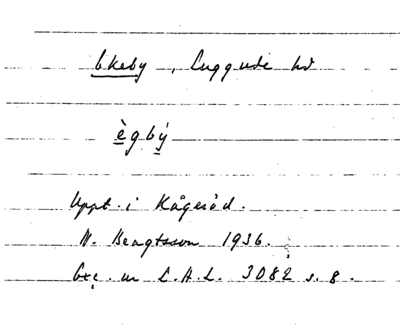 Ekeby, Luggude hd
ègbý
Uppt. i Kågeröd.
N. Bengtsson 1936.
Exc. ur L.A.L. 3082 s. 8.